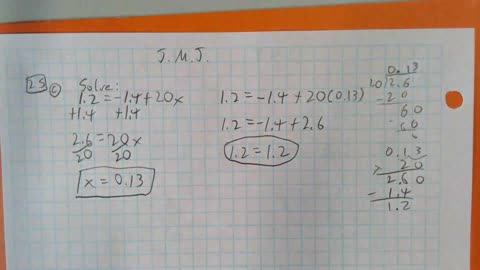 J.M.J.
25 c
Solve:
1.2 = -1.4 + 20x
+1.4 +1.4
2.6 = 20x
20 20
x = 0.13
1.2 = -1.4 + 20(0.13)
1.2 = -1.4 + 2.6
1.2 = 1.2
0.13
20 2.6
- 20
60
60
0
0.13
x 20
2.60
- 1.4
1.2